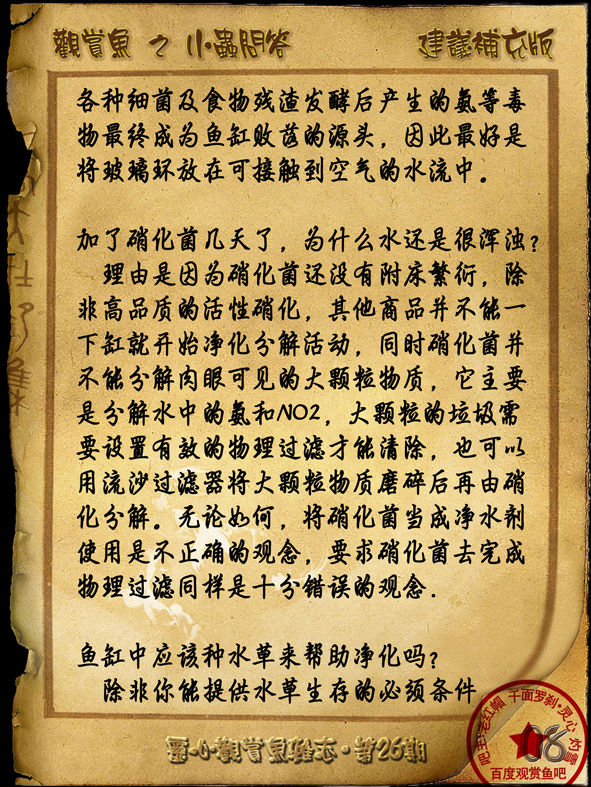 觀賞魚 之 小蟲問答
建議補充版
各种细菌及食物残渣发酵后产生的氨等毒
物最终成为鱼缸败落的源头，因此最好是
将玻璃环放在可接触到空气的水流中。
加了硝化菌几天了，为什么水还是很浑浊？
理由是因为硝化菌还没有附床繁衍，除
非高品质的活性硝化，其他商品并不能一
下缸就开始净化分解活动，同时硝化菌并
不能分解肉眼可见的大颗粒物质，它主要
是分解水中的氨和NO2，大颗粒的垃圾需
要设置有效的物理过滤才能清除，也可以
用流沙过滤器将大颗粒物质磨碎后再由硝
化分解。无论如何，将硝化菌当成净水剂
使用是不正确的观念，要求硝化菌去完成
物理过滤同样是十分错误的观念.
鱼缸中应该种水草来帮助净化吗？
除非你能提供水草生存的必须条件
靈·心觀賞魚雜志·第26期
吧主:老红帽 千面罗刹·灵心
06
百度观赏鱼吧